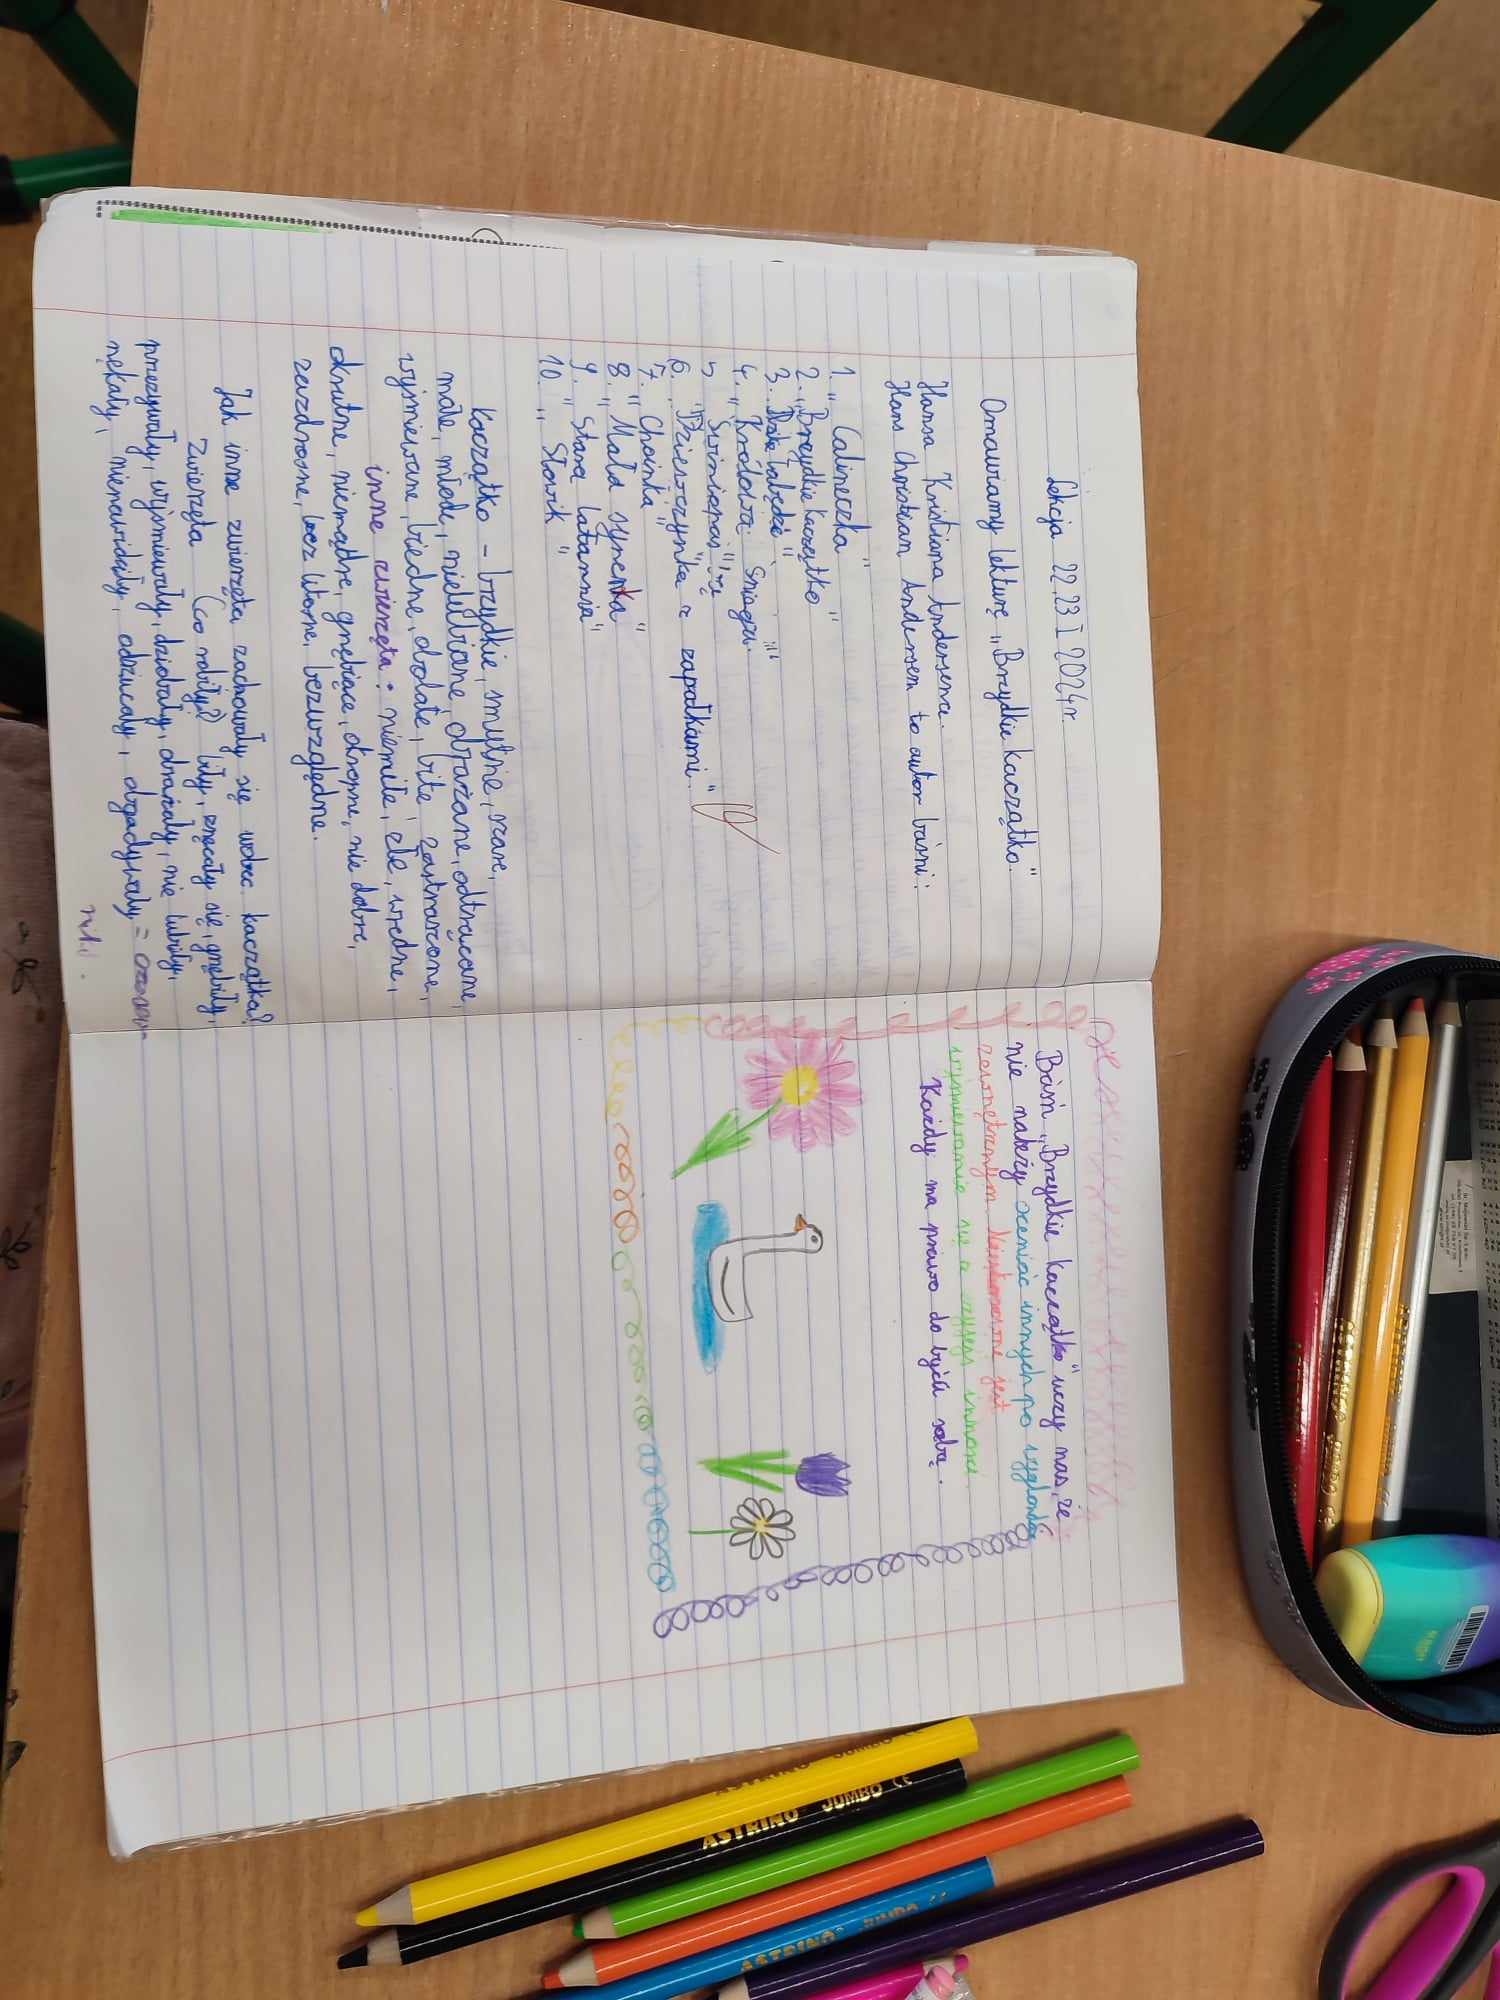 Lekcja 22,23 I 2024r.
Omawiamy lekturę „Brzydkie kaczątko”
Hansa Kristiana Andersena.
Hans Christian Andersen to autor baśni:
1. „Calineczka”
2. „Brzydkie kaczątko”
3. Dzikie łabędzie”
4. „Królowa śniegu.
5 „Świniopas”
6. „Dziewczynka z zapałkami.”
7. „Choinka”
8. „Mała syrenka”
9. „Stara latarnia”
10. „Słowik”
Kaczątko – brzydkie, smutne, szare,
małe, młode, nielubiane, obrażane, odtrącane,
wyśmiewane, biedne, obolałe, bite, zastraszone,
inne zwierzęta: niemiłe, złe, wredne,
okrutne, niemądre, gnębiące, okropne, nie dobre,
zazdrosne, bez litosne, bezwzględne.
Jak inne zwierzęta zachowały się wobec kaczątka?
Zwierzęta (co robiły?) biły, znęcały się, gnębiły,
przezywały, wyśmiewały, dziobały, drażniły, nie lubiły,
nękały, nienawidziły, odrzucały, dogadywały =
Baśń „Brzydkie kaczątko” uczy nas, że
nie należy oceniać innych po wyglondzie
zewnętrznym. Niestosowne jest
wyśmiewanie się z czyjejś inności.
Każdy ma prawo do bycia sobą.
ASTRINO JUMBO CE
ASTRINO JUMBO CE